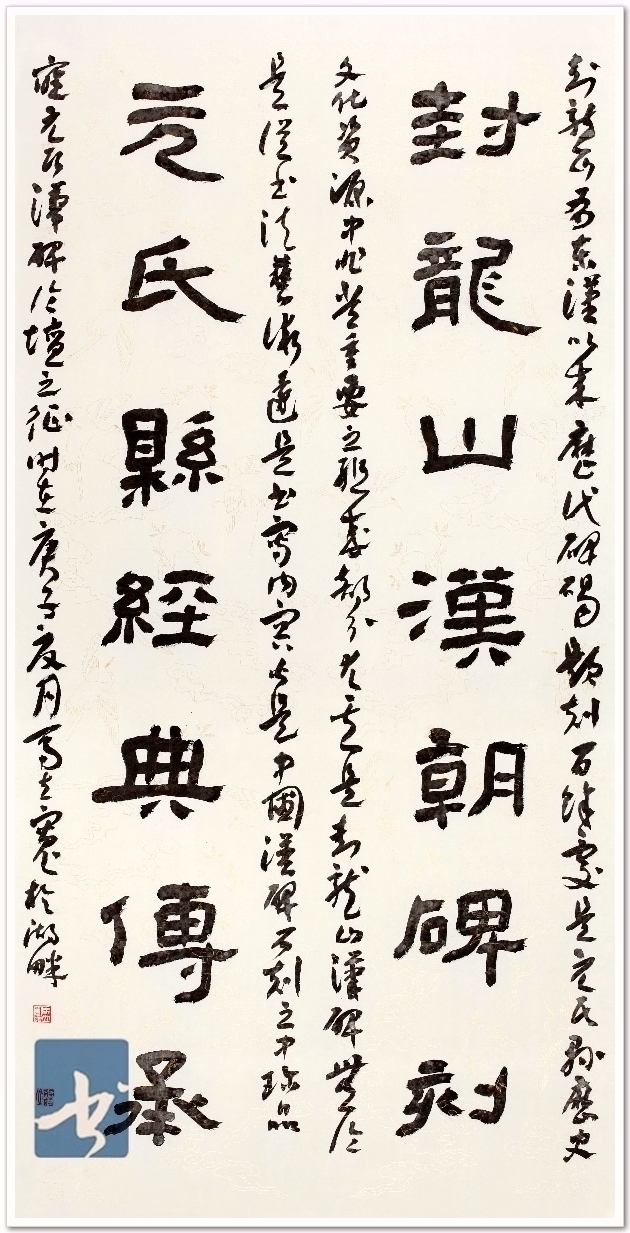 封龍山為東漢以來歷代碑碣題刻百餘處是元氏縣歷史
封龍山漢朝碑刻
文化資源中非常重要之組成部分尤其是封龍山漢碑無論
是從書法藝術還是書寫內容皆是中國漢碑石刻之中珍品
元氏縣經典傳承
應元氏漢碑論壇之征時在庚子夏月於湖畔
书